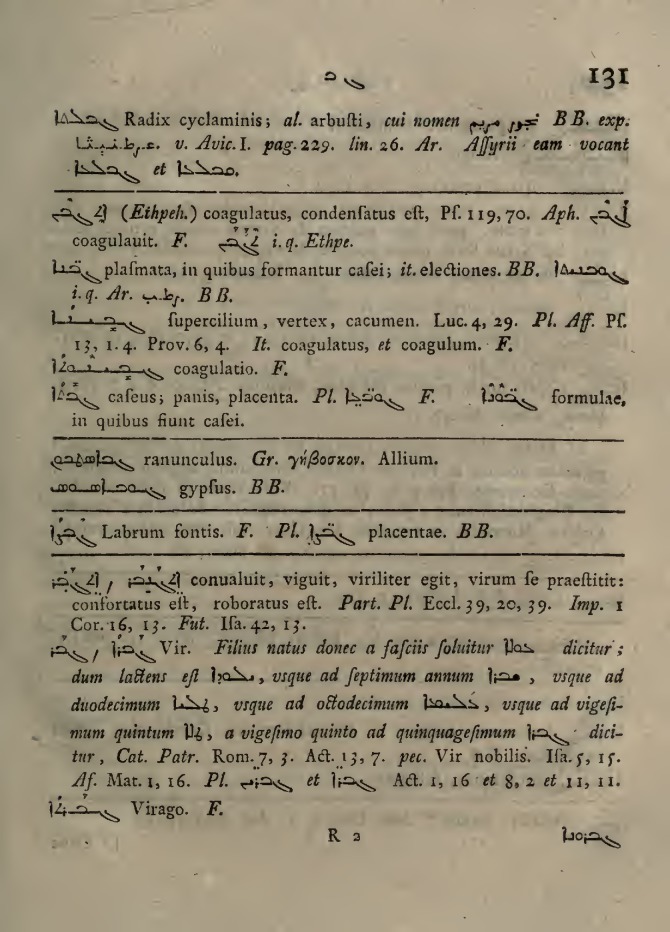 ܓܒ 131
Radix cyclaminis; al. arbuſti, cui nomen بخور مريم BB. exp.
v. Avic. I. pag. 229. lin. 26. Ar. Aſſyrii eam vocant
et
ܐܬܓܒܢ (Ethpeh.) coagulatus, condenſatus eſt, Pſ. 119, 70. Aph. ܐܓܒܢ
coagulauit. F. i. q. Ethpe.
plaſmata, in quibus formantur caſei; it. electiones. BB.
i. q. Ar. BB.
ܓܒܝܢܐ ſupercilium, vertex, cacumen. Luc. 4, 29. Pl. Aff. Pſ.
13, 1. 4. Prov. 6, 4. It. coagulatus, et coagulum. F.
ܓܒܝܢܘܬܐ coagulatio. F.
ܓܒܬܐ caſeus; panis, placenta. Pl. F. formulae,
in quibus fiunt caſei.
ranunculus. Gr. γήβοσκον. Allium.
gypſus. BB.
Labrum fontis. F. Pl. placentae. BB.
ܐܬܓܒܪ / conualuit, viguit, viriliter egit, virum ſe praeſtitit:
confortatus eſt, roboratus eſt. Part. Pl. Eccl. 39, 20, 39. Imp. 1
Cor. 16, 13. Fut. Iſa. 42, 13.
ܓܒܪ / ܓܒܪܐ Vir. Filius natus donec a faſciis ſoluitur ܥܘܠܐ dicitur;
dum lactens eſt ܝܠܘܕܐ, vsque ad ſeptimum annum ܫܒܪܐ, vsque ad
duodecimum ܛܠܝܐ, vsque ad octodecimum ܥܠܝܡܐ, vsque ad vigeſi-
mum quintum , a vigeſimo quinto ad quinquageſimum ܓܒܪܐ dici-
tur, Cat. Patr. Rom. 7, 3. Act. 13, 7. pec. Vir nobilis. Iſa. 5, 15.
Af. Mat. 1, 16. Pl. ܓܒܪܝܢ et ܓܒܪܐ Act. 1, 16 et 8, 2 et 11, 11.
ܓܒܪܬܐ Virago. F.
R 2 ܓܒܪܘܢܐ